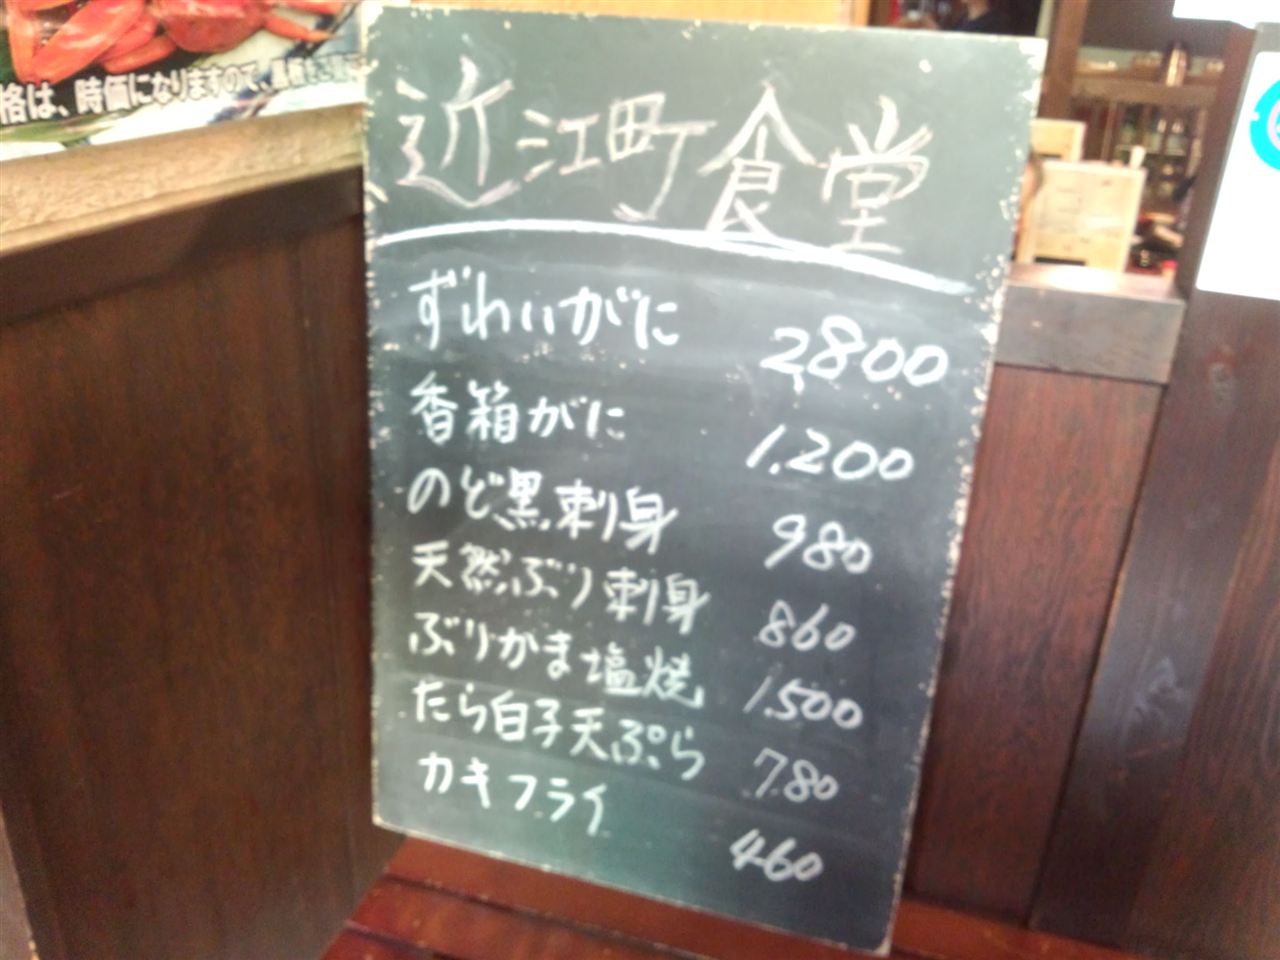 格は、時価になりますので、黒板をご覧下
近江町食堂
ずわいがに 2,800
香箱がに 1,200
のど黒刺身 980
天然ぶり刺身 860
ぶりかま塩焼 1,500
たら白子天ぷら 780
カキフライ 460